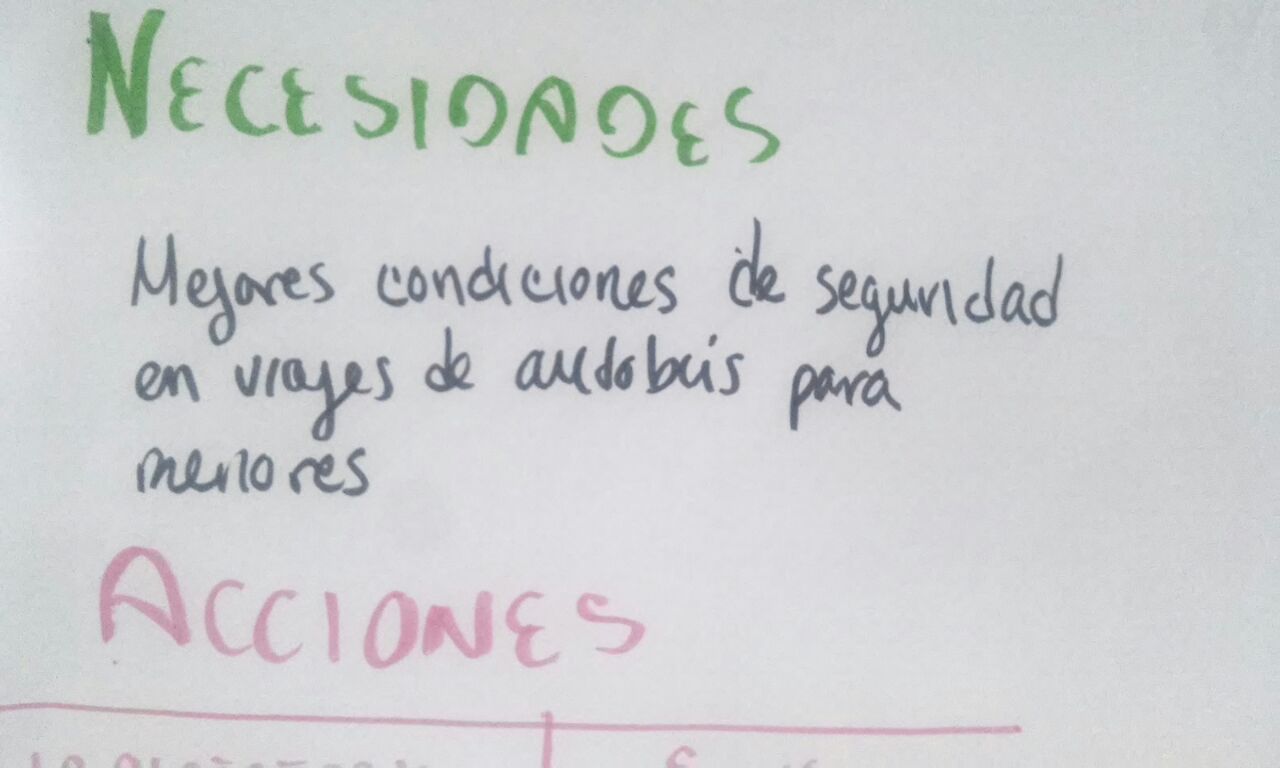 NECESIDADES
Mejores condiciones de seguridad
en viajes de autobús para
menores
ACCIONES